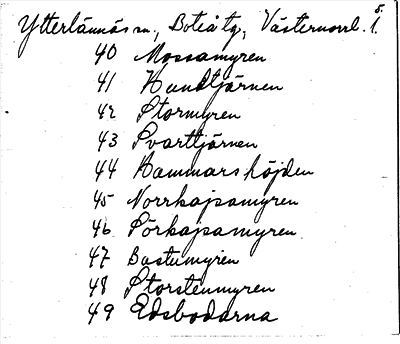 Ytterlännäs sn., Boteå tg., Västernorrl. l. 5.
40 Mossamyren
41 Hundtjärnen
42 Stormyren
43 Svarttjärnen
44 Hammarshöjden
45 Norrkajsamyren
46 Sörkajsamyren
47 Bastumyren
48 Storstenmyren
49 Edsbodarna